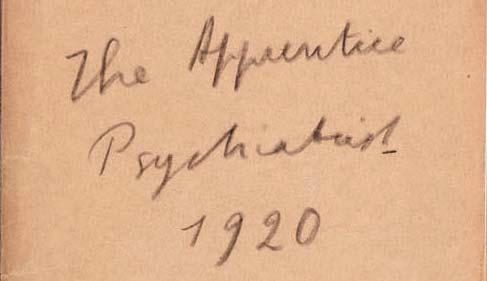 The Apprentice
Psychiatrist
1920